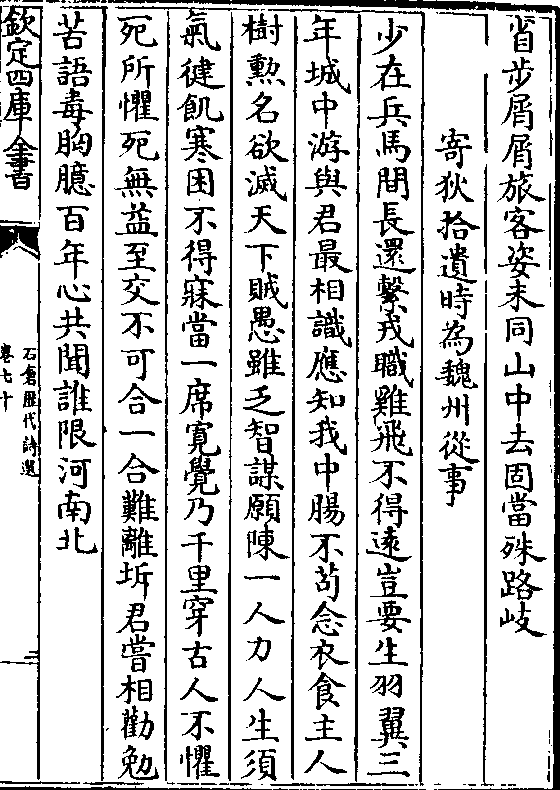 省步屑屑旅客姿未同山中去固當殊路歧
寄狄拾遺時為魏州從事
少在兵馬間長還繫戎職雞飛不得遠豈要生羽翼三
年城中游與君最相識應知我中腸不苟念衣食主人
樹勲名欲滅天下賊愚雖乏智謀願陳一人力人生須
氣健飢寒困不得寐當一席寛覺乃千里穿古人不懼
死所懼死無益至交不可合一合難離坼君嘗相勸勉
苦語毒胸臆百年心共聞誰限河南北
欽定四庫全書
石倉歷代詩選
卷七十
二